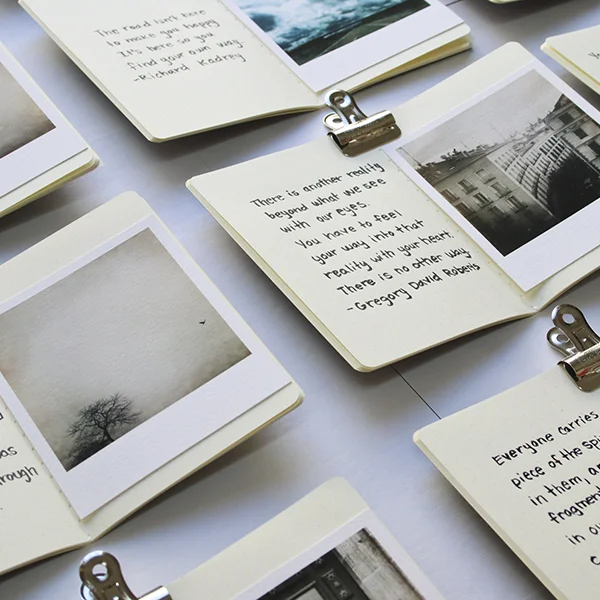 The road isn't here
to make you happy
It's here so you
find your own way.
-Richard Kadrey
There is another reality
beyond what we see
with our eyes.
You have to feel
your way into that
reality with your heart.
There is no other way
-Gregory David Roberts
Everyone carries
piece of the
in them,
fragment
in